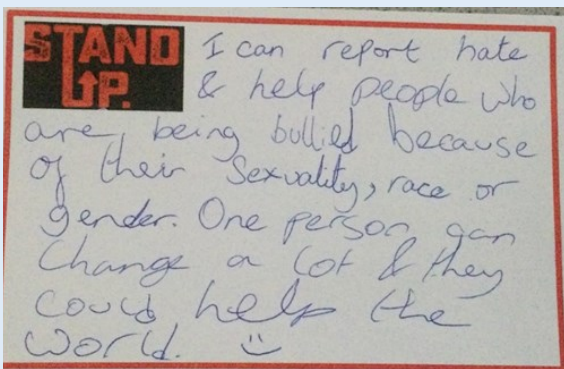 STAND
UP.
I can report hate
& help people who
are being bullied because
of their sexuality, race or
gender. One person can
change a lot & they
could help the
world.